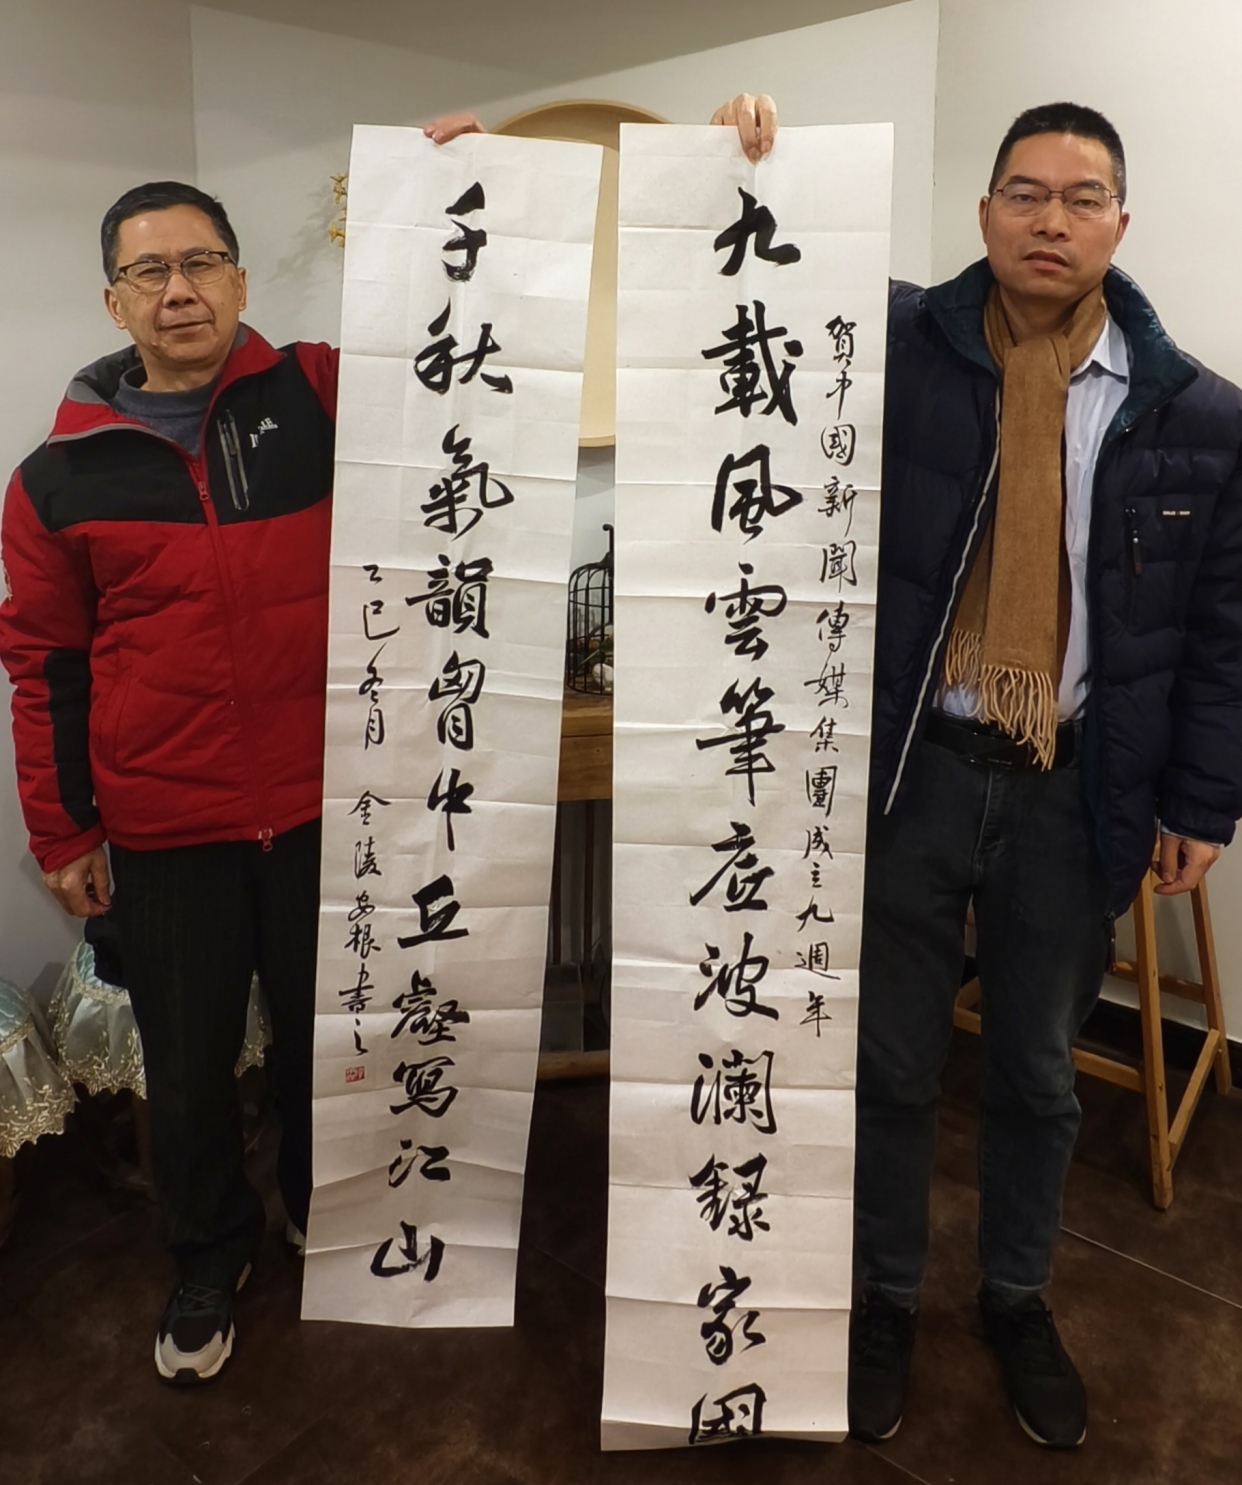 賀中國新聞傳媒集團成立九週年
九載風雲筆底波瀾録家國
千秋氣韻胷中丘壑寫江山
乙巳冬月 金陵安根書之